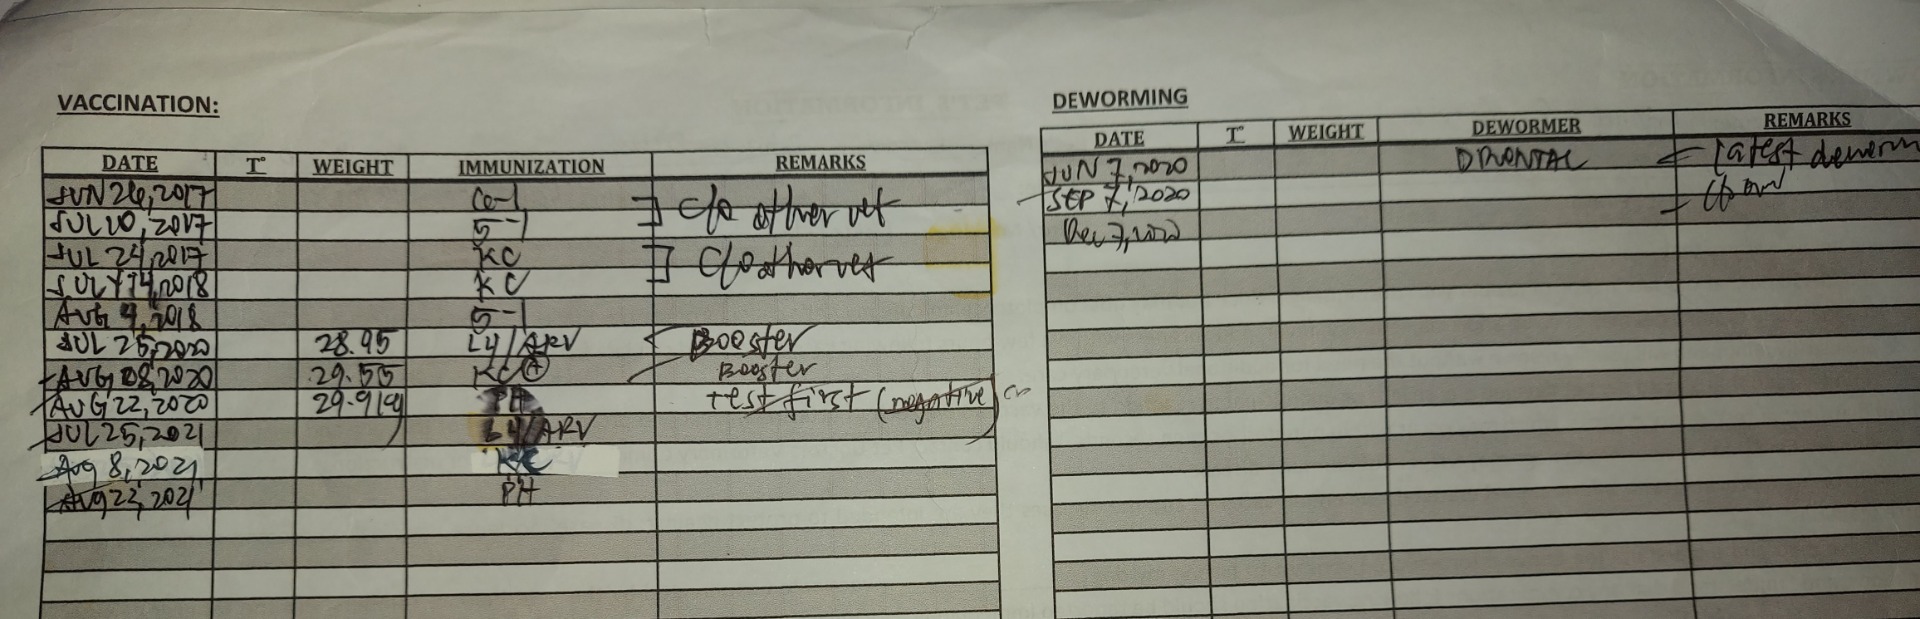 VACCINATION:
DATE T° WEIGHT IMMUNIZATION REMARKS
JUN 26, 2017
JUL 10, 2017 5-1 c/o other vet
JUL 24, 2017 KC
JULY 14, 2018 KC c/o other vet
AUG 4, 2018 5-1
JUL 25, 2020 28.95 L4/ARV Booster
AUG 08, 2020 29.55 KC Booster
AUG 22, 2020 29.9 PH test first (negative)
JUL 25, 2021 L4/ARV
Aug 8, 2021 KC
AUG 22, 2021 PH
DEWORMING
DATE T° WEIGHT DEWORMER REMARKS
JUN 7, 2020 DRONTAL latest deworm
SEP 7, 2020
Dec 7, 2020